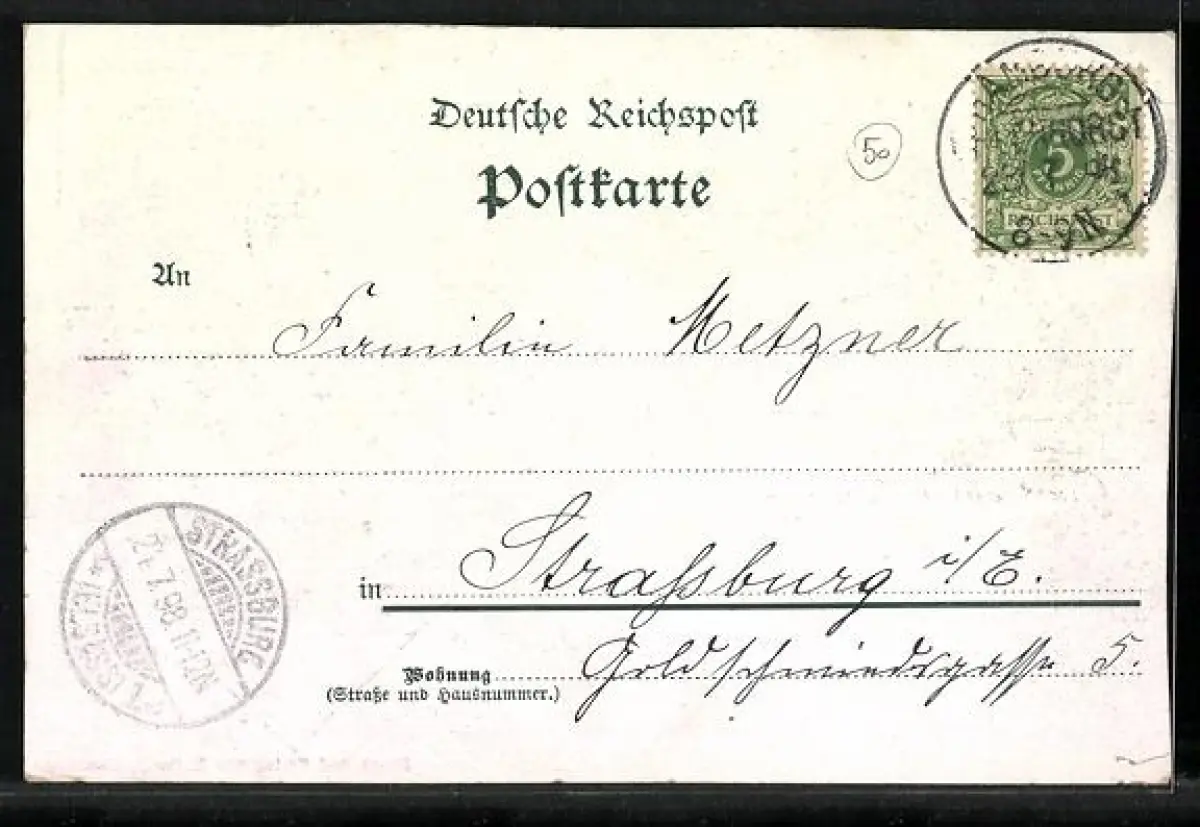 Deutsche Reichspost
Postkarte
50
5
REICHSPOST
8-9N
An
Familie Metzner
in Straßburg i/E.
Wohnung Goldschmiedsgasse 5.
(Straße und Hausnummer.)
STRASSBURG
21.7.98.11-12N